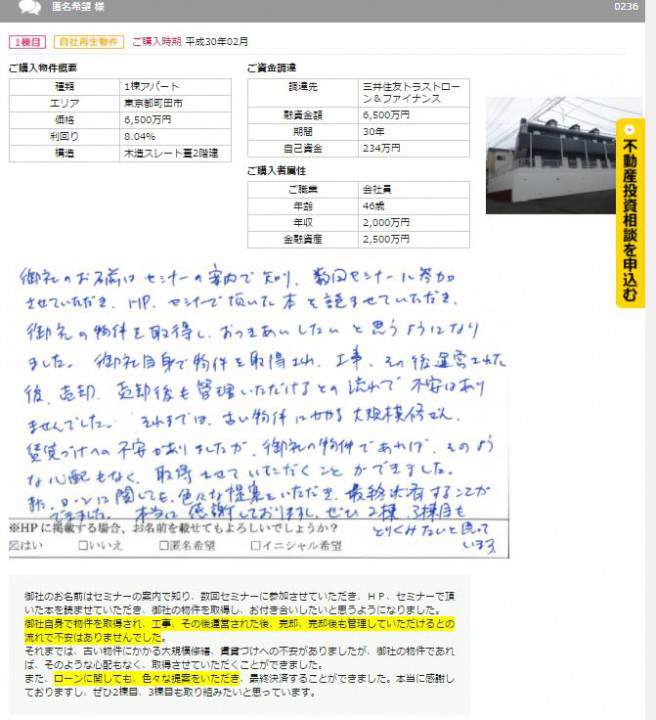 匿名希望 様
0236
1棟目 自社再生物件 ご購入時期 平成30年02月
ご購入物件概要
種類 1棟アパート
エリア 東京都町田市
価格 6,500万円
利回り 8.04%
構造 木造スレート葺2階建
ご資金調達
調達先 三井住友トラストロー
ン&ファイナンス
融資金額 6,500万円
期間 30年
自己資金 234万円
ご購入者属性
ご職業 会社員
年齢 46歳
年収 2,000万円
金融資産 2,500万円
不動産投資相談を申込む
御社のお名前はセミナーの案内で知り、数回セミナーに参加
させていただき、HP、セミナーで頂いた本を読ませていただき、
御社の物件を取得し、おつきあいしたいと思うようになり
ました。御社自身で物件を取得され、工事、その後運営された
後、売却、売却後も管理いただけるとの流れで不安はあり
ませんでした。それまでは、古い物件にかかる大規模修せん、
賃貸づけへの不安がありましたが、御社の物件であれば、そのよう
な心配もなく、取得させていただくことができました。
又、ローンに関しても、色々な提案をいただき、最終決済することが
できました。本当に感謝しておりますし、ぜひ2棟、3棟目も
とりくみたいと思って
います。
※HPに掲載する場合、お名前を載せてもよろしいでしょうか?
☒はい □いいえ □匿名希望 □イニシャル希望
御社のお名前はセミナーの案内で知り、数回セミナーに参加させていただき、HP、セミナーで頂
いた本を読ませていただき、御社の物件を取得し、お付き合いしたいと思うようになりました。
御社自身で物件を取得され、工事、その後運営された後、売却、売却後も管理していただけるとの
流れで不安はありませんでした。
それまでは、古い物件にかかる大規模修繕、賃貸づけへの不安がありましたが、御社の物件であれ
ば、そのような心配もなく、取得させていただくことができました。
また、ローンに関しても、色々な提案をいただき、最終決済することができました。本当に感謝し
ておりますし、ぜひ2棟目、3棟目も取り組みたいと思っています。